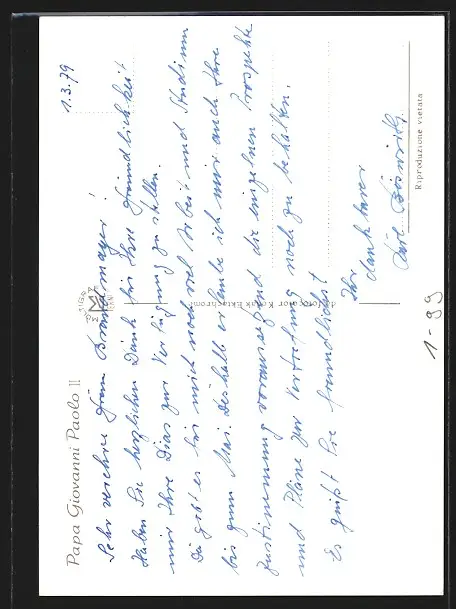 Papa Giovanni Paolo II
1.3.79
Sehr verehrte Frau Brandmayer!
Haben Sie herzlichen Dank für Ihre Freundlichkeit
mir Ihre Dias zur Verfügung zu stellen.
Da gibt es für mich noch viel Arbeit und Studium
bis zum Mai. Deshalb erlaube ich mir auch Ihre
Zustimmung voraussetzend die einzelnen Prospekte
und Pläne zur Vertiefung noch zu behalten.
Es grüßt Sie freundlichst
Ihr
dankbarer
Kodak Ektachrome
Riproduzione vietata
1-99